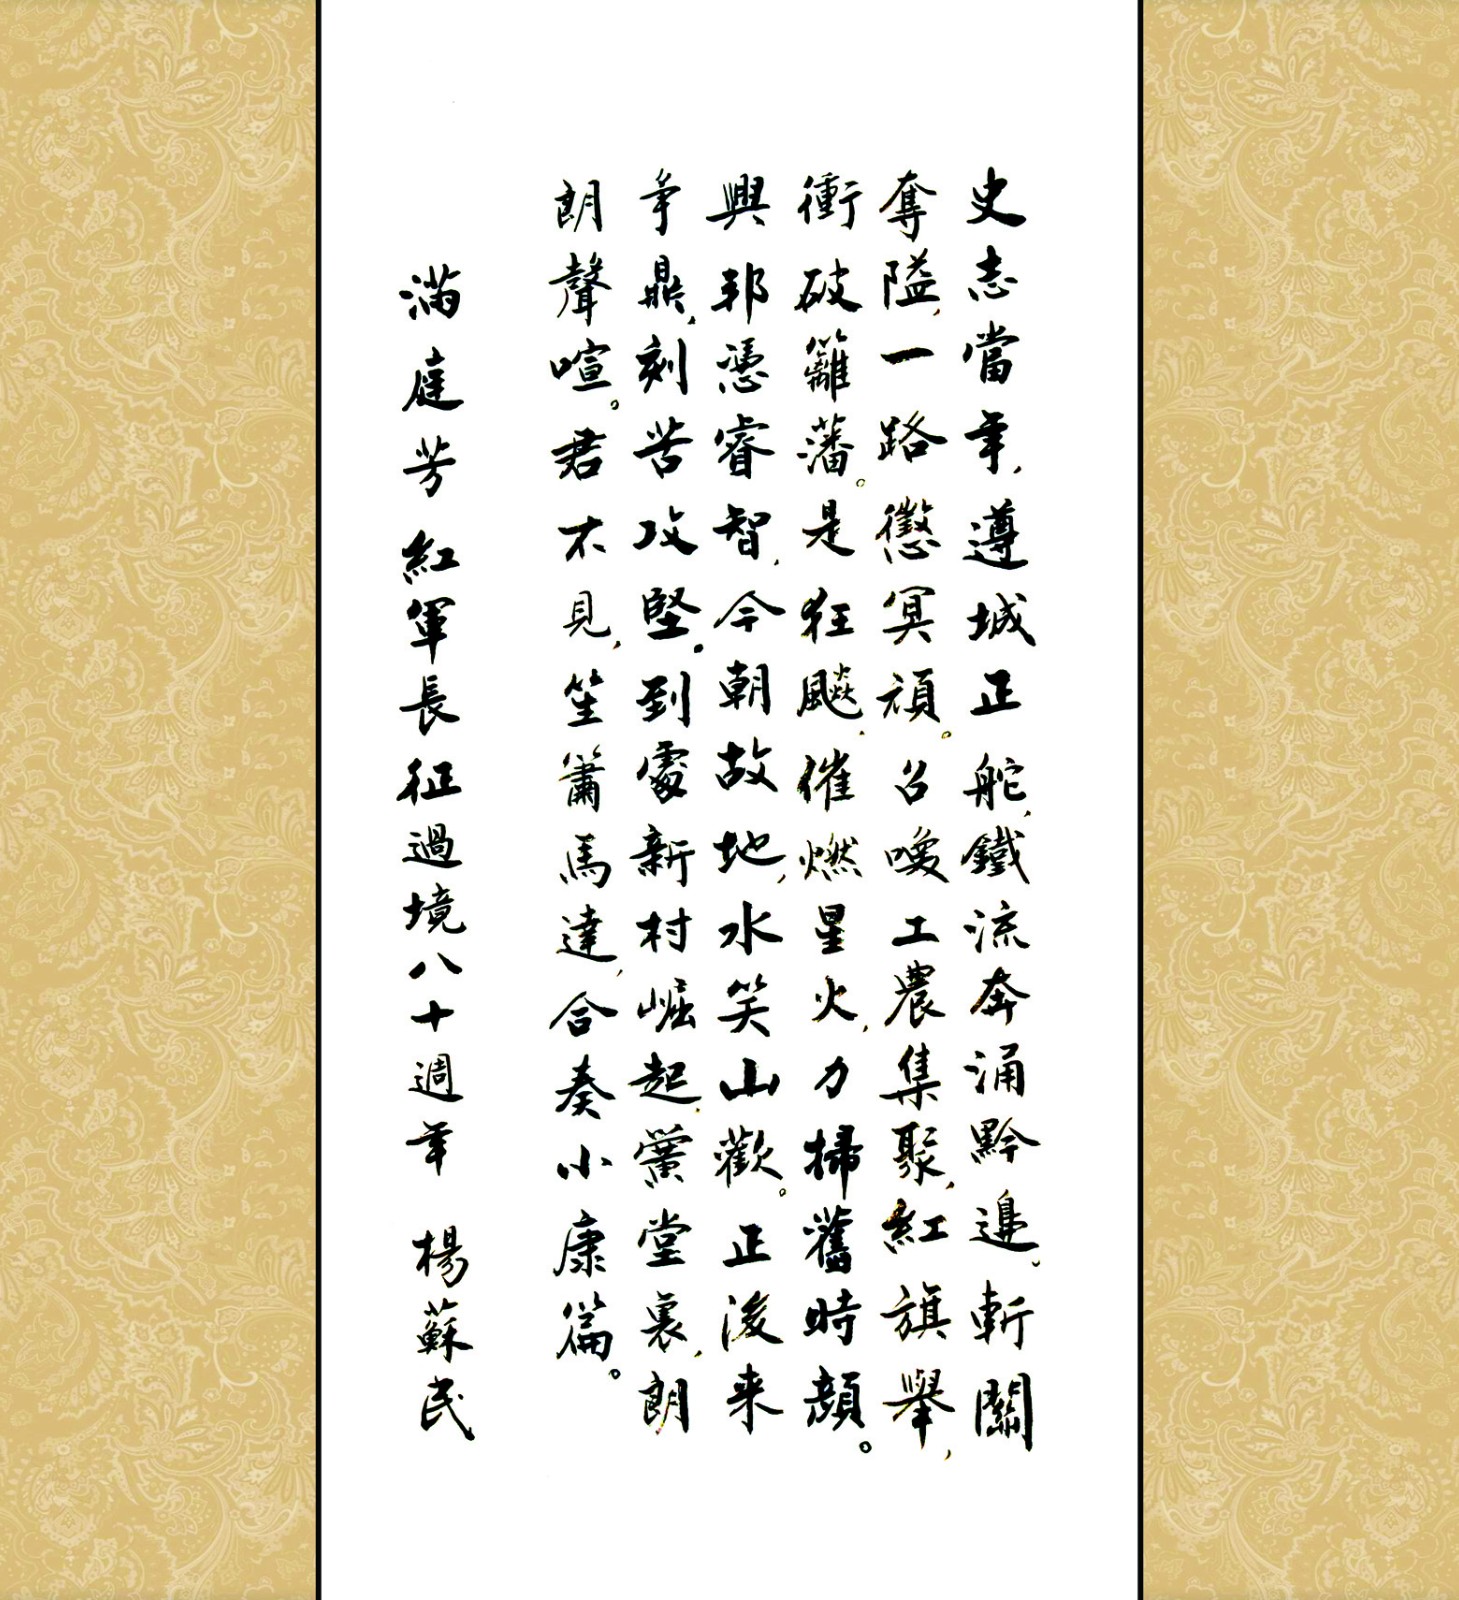 史志當年，遵城正舵，鐵流奔涌黔邊。斬關
奪隘，一路懲冥頑。召喚工農集聚，紅旗舉，
衝破籬藩。是狂飈，催燃星火，力掃舊時顏。
興邦憑睿智，今朝故地，水笑山歡。正後来
争鼎，刻苦攻堅。到處新村崛起，黌堂裏，朗
朗聲喧。君不見，笙簫馬達，合奏小康篇。
滿庭芳 紅軍長征過境八十週年 楊蘇民